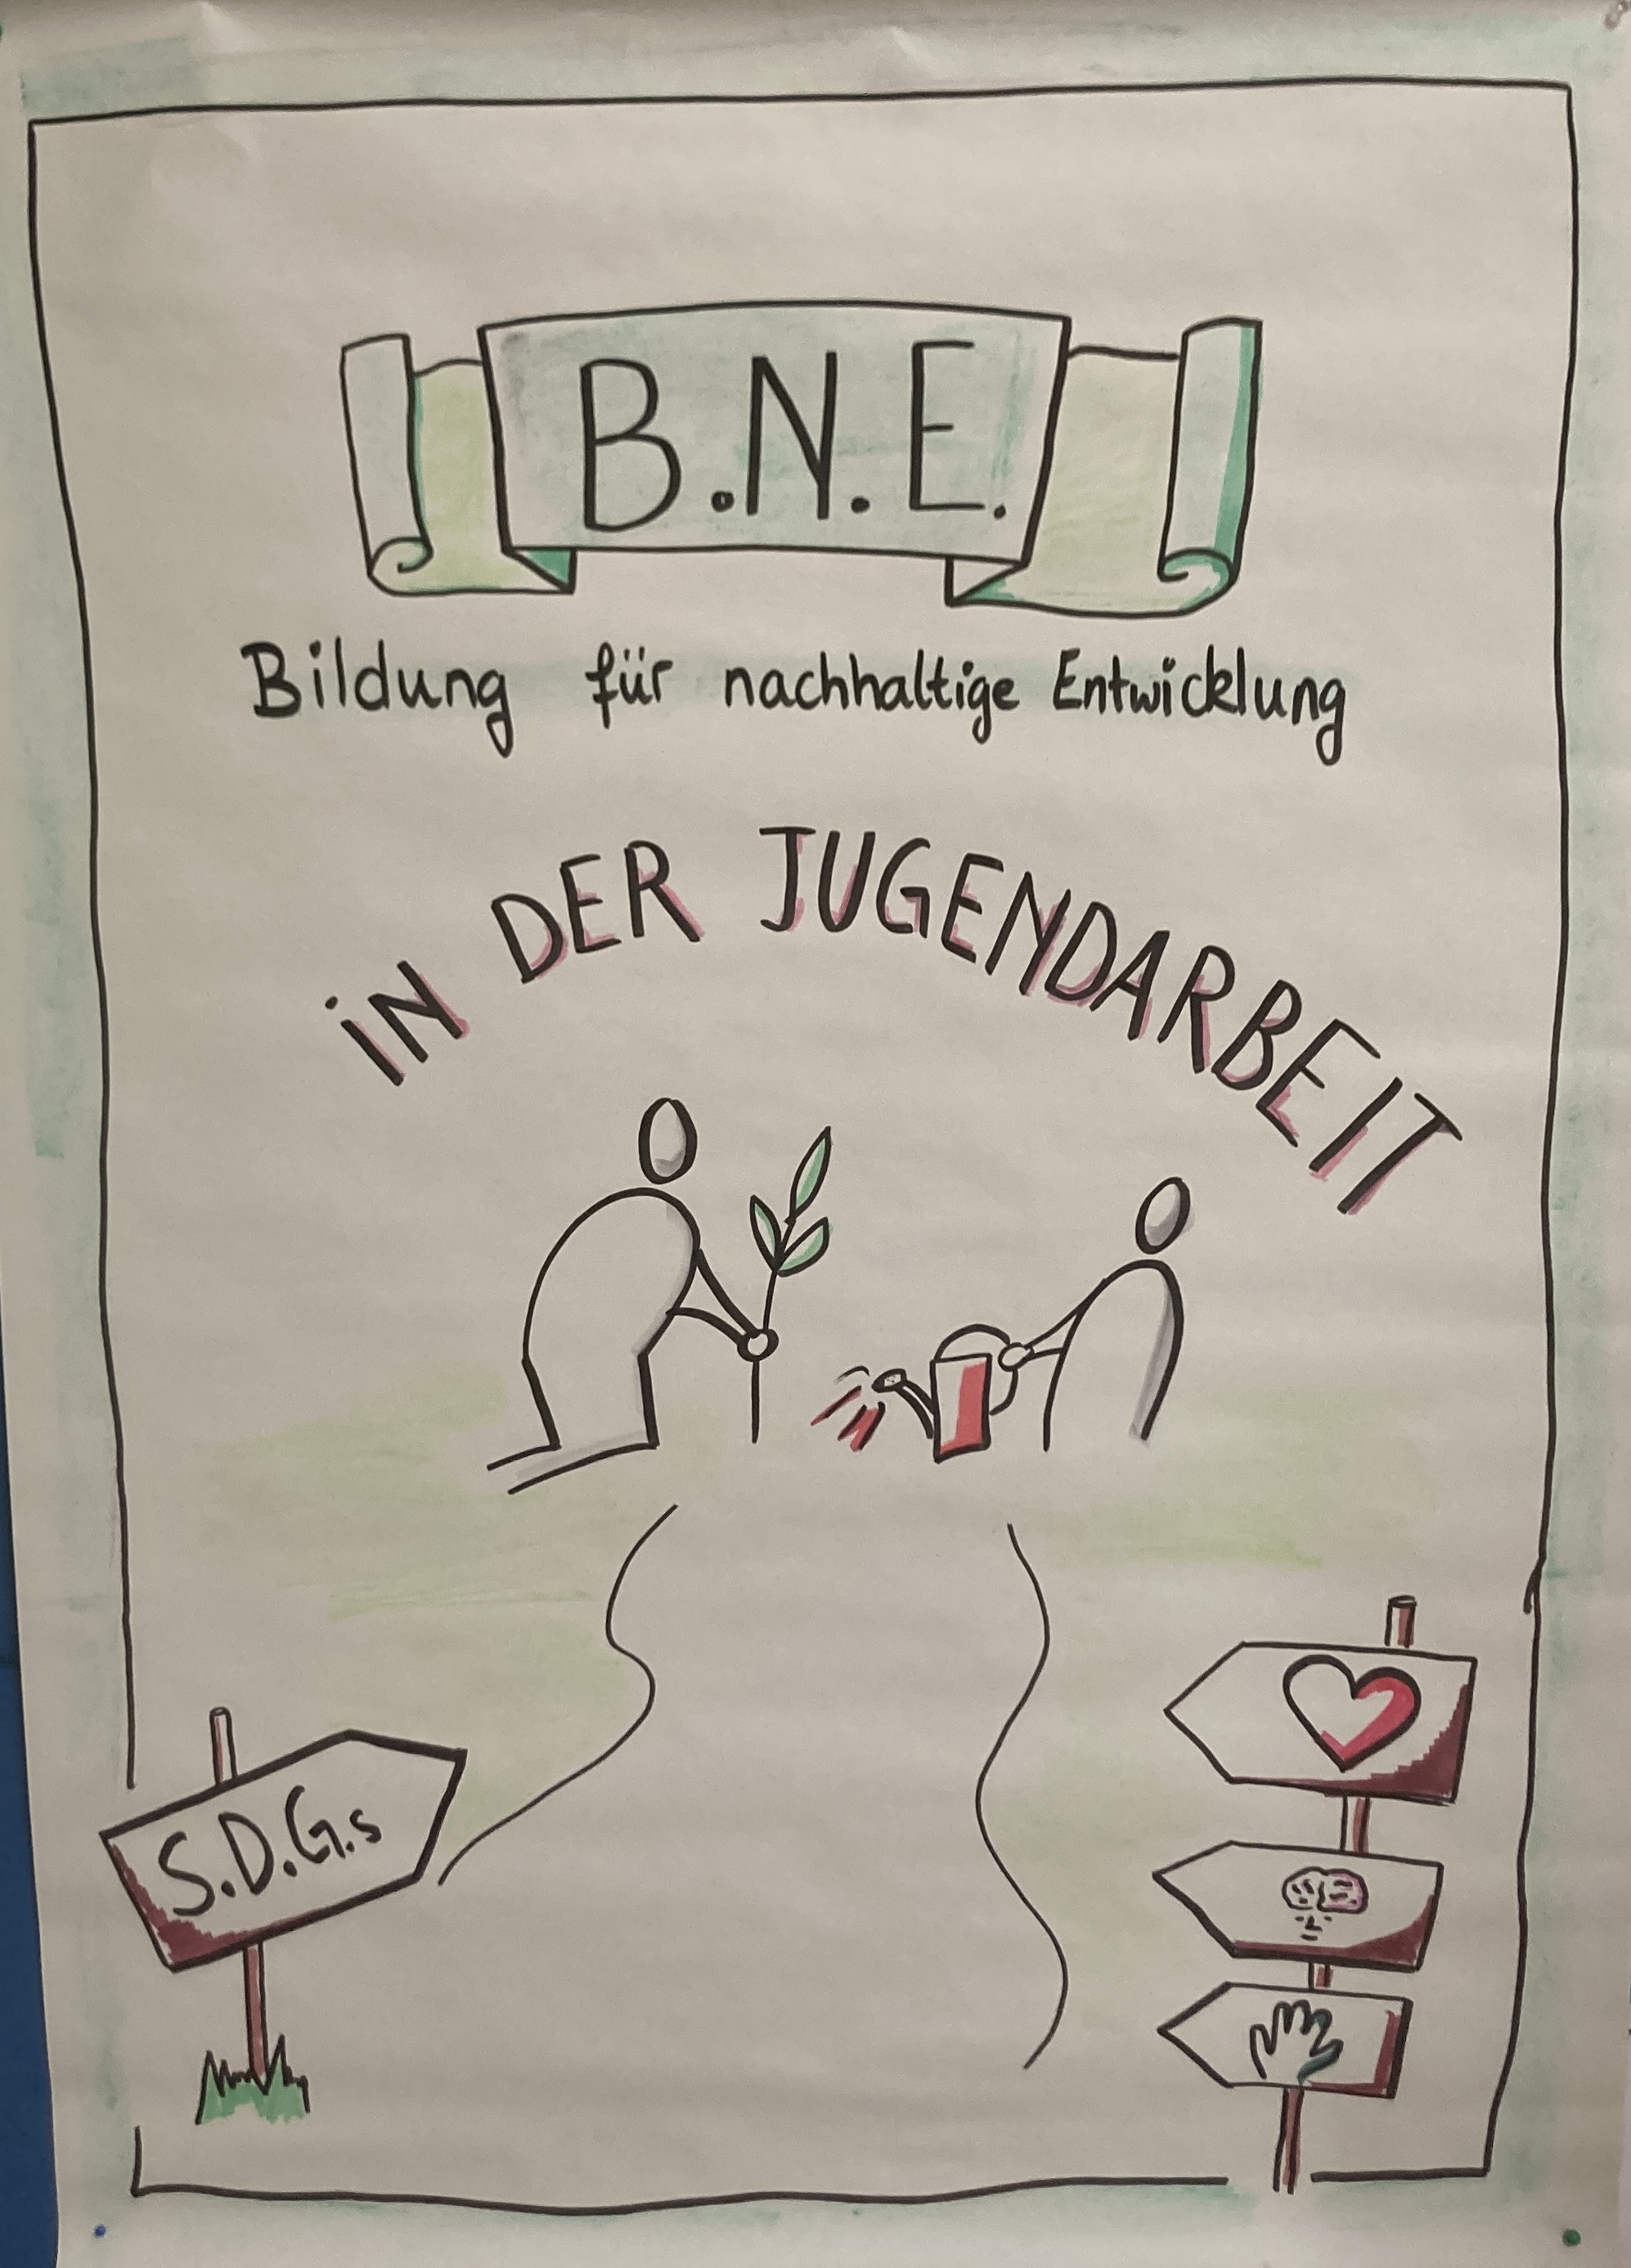 B.N.E.
Bildung für nachhaltige Entwicklung
iN DER JUGENDARBEIT
S.D.G.s